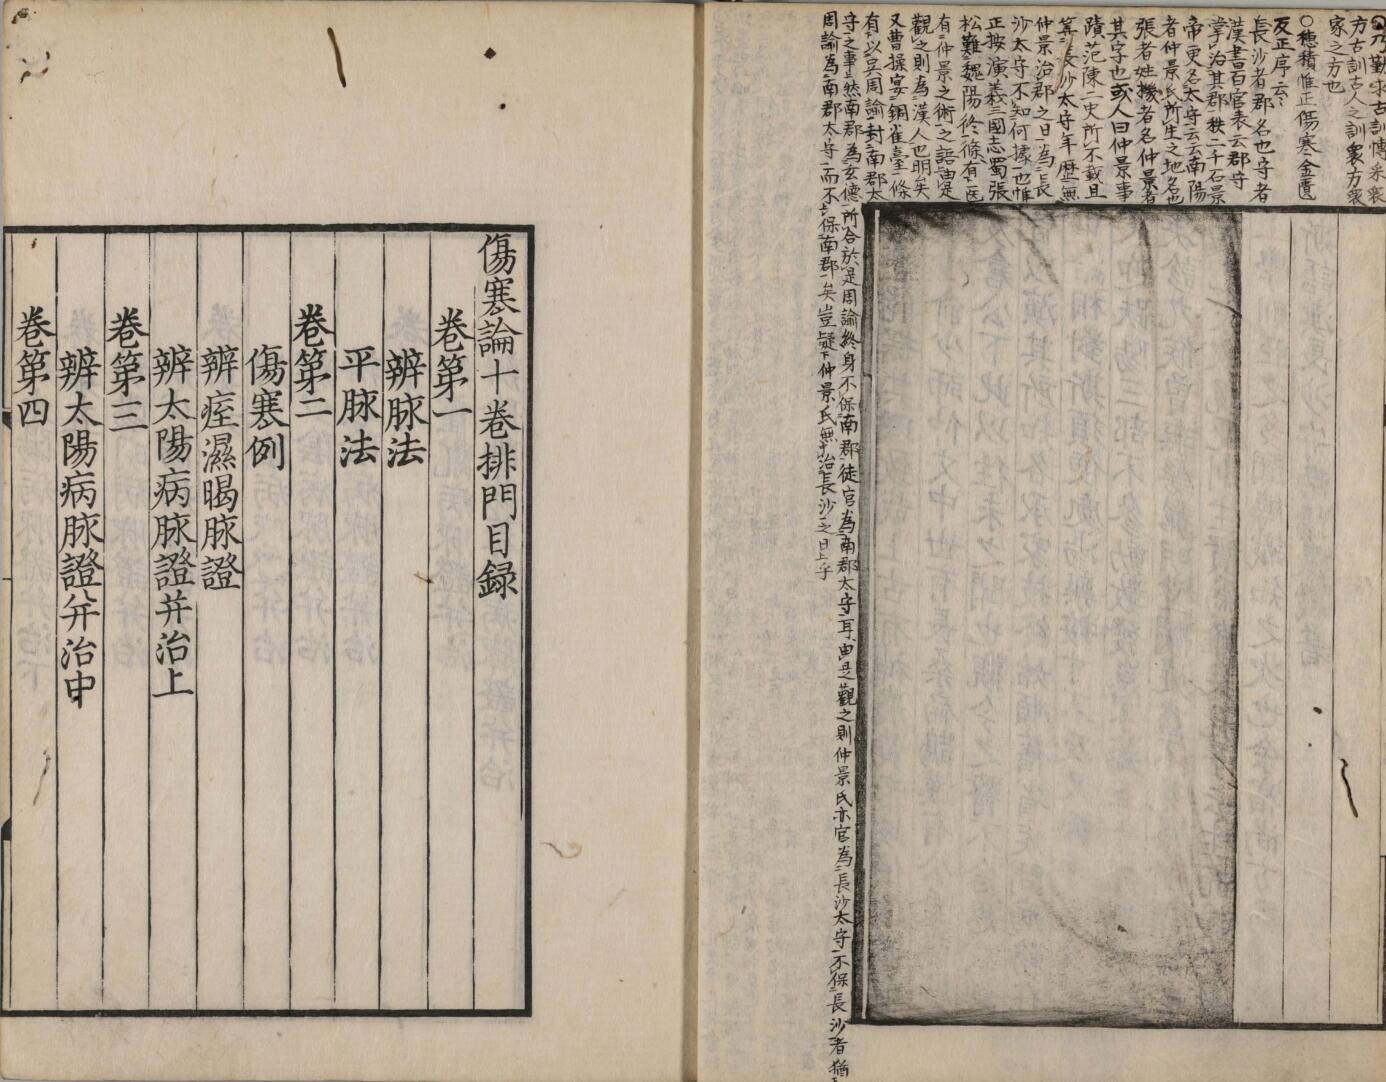 〇乃勤求古訓愽采衆
方古訓古人之訓衆方衆
家之方也
〇穂積惟正傷寒金匱
反正序云
長沙者郡名也守者
漢書百官表云郡守
掌治其郡秩二千石景
帝更名太守云云南陽
者仲景氏所生之地名也
張者姓機者名仲景者
其字也或人曰仲景事
蹟范陳二史所不載且
筭長沙太守年歴無
仲景治郡之日為長
沙太守不知何據也惟
正按演義三國志蜀張
松難魏陽脩條有医
有仲景之術之語由是
觀之則為漢人也明矣
又曹操宴銅雀臺條
有以呉周瑜封南郡太
守之事然南郡為玄德所合於是周瑜終身不保南郡徒官為南郡太守耳由是觀之則仲景氏亦官為長沙太守不保長沙者猶
周瑜為南郡太守而不保南郡矣豈疑仲景氏無治長沙之日乎
傷寒論十卷排門目録
卷第一
辨脉法
平脉法
卷第二
傷寒例
辨痓濕暍脉證
辨太陽病脉證并治上
卷第三
辨太陽病脉證并治中
卷第四